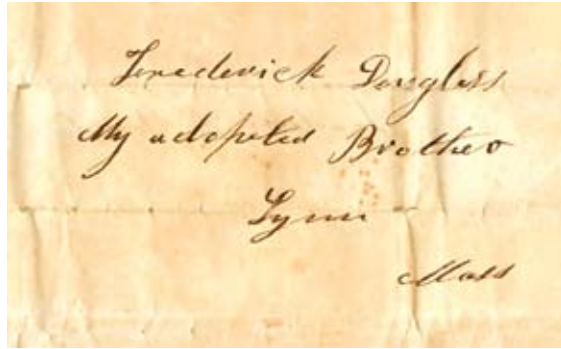 Frederick Douglass
My adopted Brother
Lynn
Mass